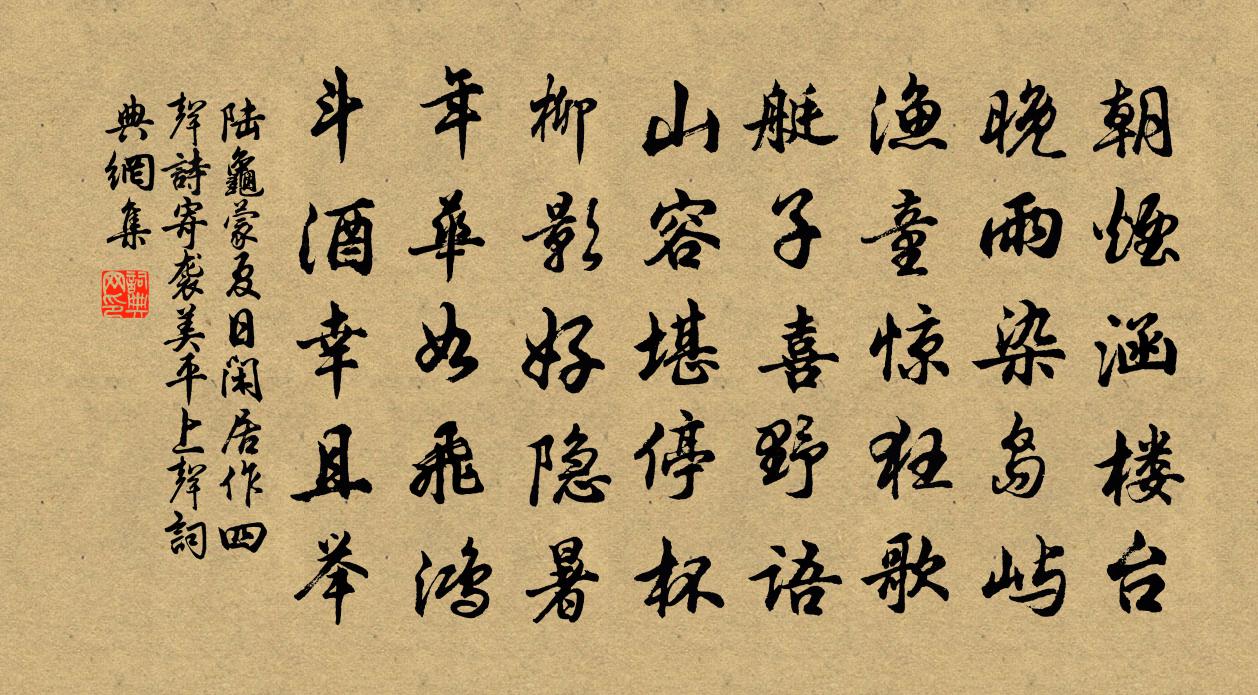 朝煙涵楼台
晚雨染岛屿
渔童惊狂歌
艇子喜野语
山容堪停杯
柳影好隐暑
年華如飛鸿
斗酒幸且举
陆龜蒙夏日闲居作四
聲詩寄袭美平上聲詞
典網集
詞典
网印